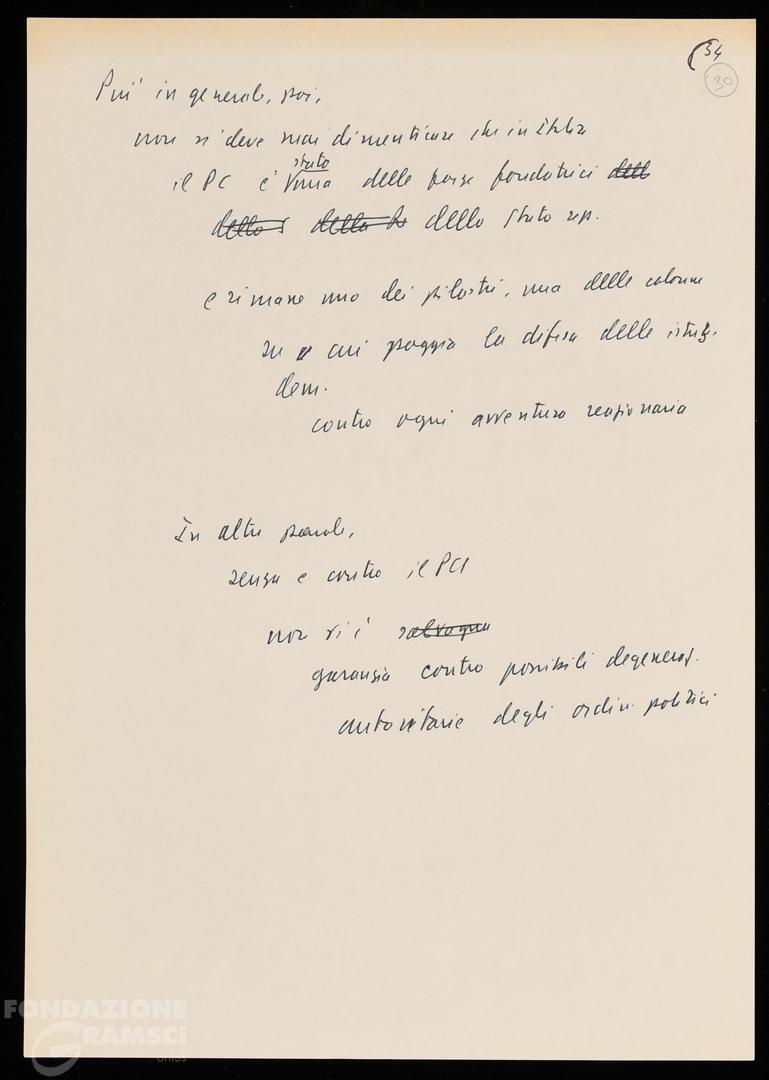 (34
30
Piu' in generale, poi,
non si deve mai dimenticare che in Italia
stato
il PC e' una delle forze fondatrici dell
dello S della R dello Stato rep.
e rimane uno dei pilastri, una delle colonne
su cui poggia la difesa delle istituz.
dem.
contro ogni avventura reazionaria
In altre parole,
senza e contro il PCI
non vi è salvagua
garanzia contro possibili degeneraz.
autoritarie degli ordin. politici
FONDAZIONE
GRAMSCI
onlus